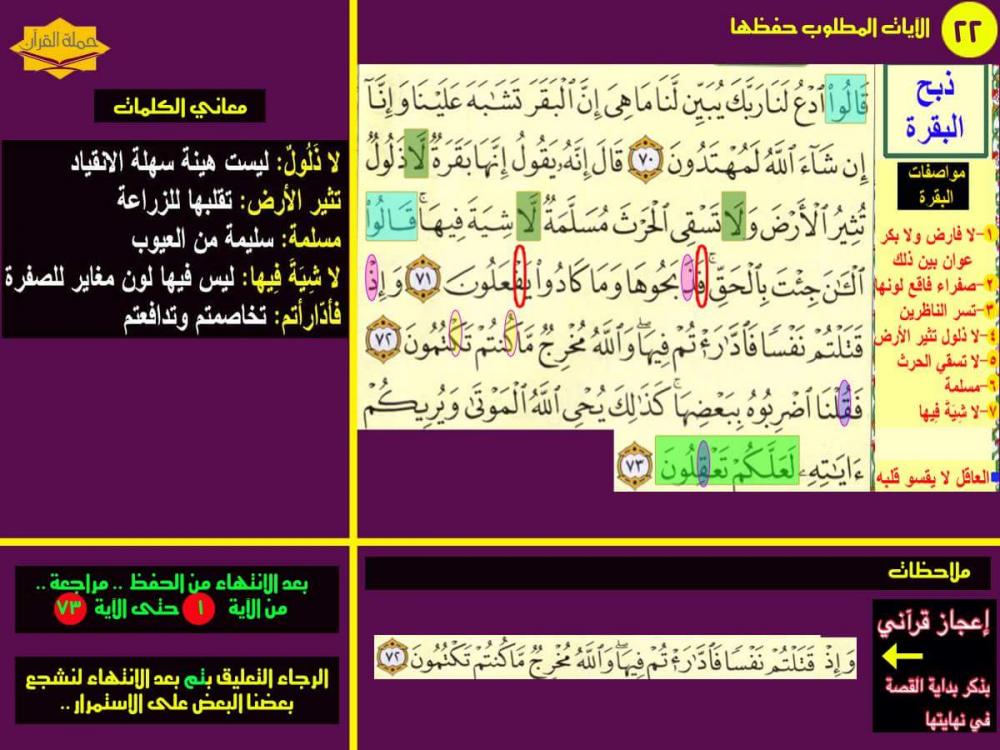 ٢٢
الآيات المطلوب حفظها
حملة القرآن
ذبح
البقرة
مواصفات
البقرة
١-لا فارض ولا بكر
عوان بين ذلك
٢-صفراء فاقع لونها
٣-تسر الناظرين
٤-لا ذلول تثير الأرض
٥-لا تسقي الحرث
٦-مسلمة
٧-لا شِيَةَ فِيها
العاقل لا يقسو قلبه
قَالُوا۟ ٱدْعُ لَنَا رَبَّكَ يُبَيِّن لَّنَا مَا هِىَ إِنَّ ٱلْبَقَرَ تَشَٰبَهَ عَلَيْنَا وَإِنَّآ
إِن شَآءَ ٱللَّهُ لَمُهْتَدُونَ ٧٠ قَالَ إِنَّهُۥ يَقُولُ إِنَّهَا بَقَرَةٌ لَّا ذَلُولٌ
تُثِيرُ ٱلْأَرْضَ وَلَا تَسْقِى ٱلْحَرْثَ مُسَلَّمَةٌ لَّا شِيَةَ فِيهَا ۚ قَالُوا۟
ٱلْـَٰٔنَ جِئْتَ بِٱلْحَقِّ ۚ فَذَبَحُوهَا وَمَا كَادُوا۟ يَفْعَلُونَ ٧١ وَإِذْ
قَتَلْتُمْ نَفْسًا فَٱدَّٰرَْٰٔتُمْ فِيهَا ۖ وَٱللَّهُ مُخْرِجٌ مَّا كُنتُمْ تَكْتُمُونَ ٧٢
فَقُلْنَا ٱضْرِبُوهُ بِبَعْضِهَا ۚ كَذَٰلِكَ يُحْىِ ٱللَّهُ ٱلْمَوْتَىٰ وَيُرِيكُمْ
ءَايَٰتِهِۦ لَعَلَّكُمْ تَعْقِلُونَ ٧٣
معاني الكلمات
لا ذَلُولٌ: ليست هينة سهلة الانقياد
تثير الأرض: تقلبها للزراعة
مسلمة: سليمة من العيوب
لا شِيَةَ فِيها: ليس فيها لون مغاير للصفرة
فادَّارأتم: تخاصمتم وتدافعتم
ملاحظات
إعجاز قرآني
بذكر بداية القصة
في نهايتها
وَإِذْ قَتَلْتُمْ نَفْسًا فَٱدَّٰرَْٰٔتُمْ فِيهَا ۖ وَٱللَّهُ مُخْرِجٌ مَّا كُنتُمْ تَكْتُمُونَ ٧٢
بعد الانتهاء من الحفظ .. مراجعة ..
من الآية ١ حتى الآية ٧٣
الرجاء التعليق بتم بعد الانتهاء لنشجع
بعضنا البعض على الاستمرار ..